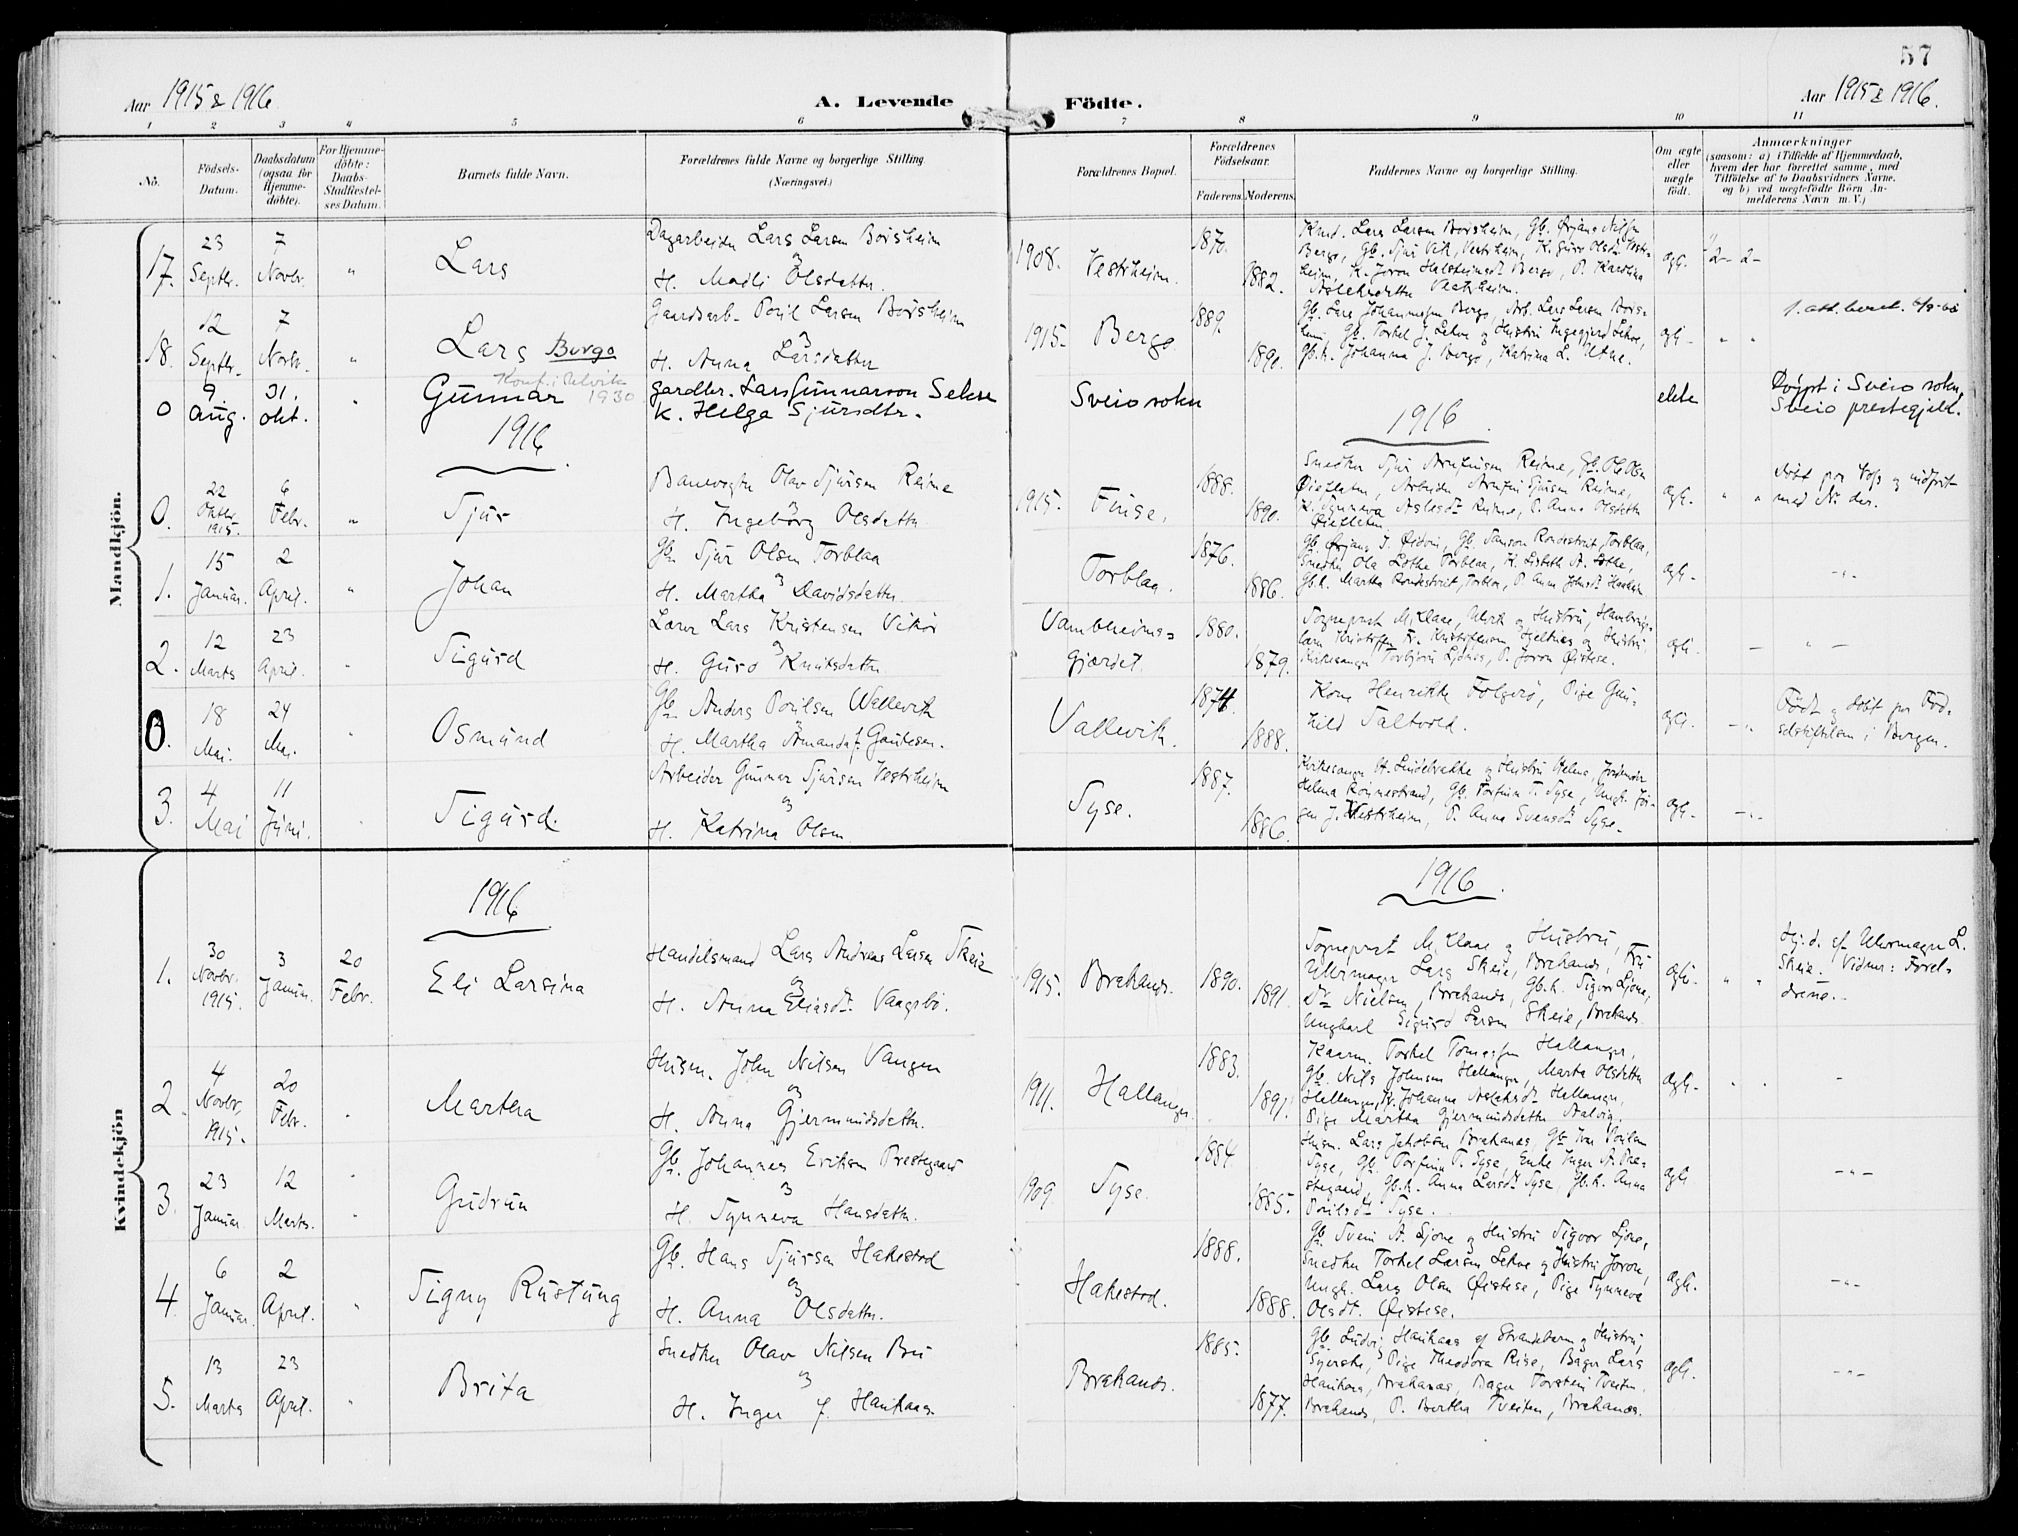 57
Aar 1915 & 1916
A. Levende
Födte.
Aar 1915 & 1916.
1 2 3 4 5 6 7 8 9 10 11
No.
Födsels-
Datum.
Daabsdatum
(ogsaa for
Hjemme-
döbte).
For Hjemme-
döbte:
Daabs-
Stadfæstel-
ses Datum.
Barnets fulde Navn.
Forældrenes fulde Navne og borgerlige Stilling.
(Næringsvei.)
Forældrenes Bopæl.
Forældrenes
Födselsaar.
Faderens.
Moderens.
Faddernes Navne og borgerlige Stilling.
Om ægte
eller
uægte
födt.
Anmærkninger
(saasom: a) i Tilfælde af Hjemmedaab,
hvem der har forrettet samme, med
Tilföielse af to Daabsvidners Navne,
og b) ved uægtefödte Börn An-
melderens Navn m. V.)
Mandkjön.
17. 23 Septbr. 7 Novbr. " Lars
Dagarbeider Lars Larsen Börsheim
H. Maili Olsdatter
1908. Vestrheim. 1870. 1882.
Knud. Lars Larsen Börsheim, Gb.
Berge, Gb. Sjur Vik, Vestrheim, K. Guro Olsdt. Vestr-
heim, K. Joron Halsteinsdt. Berge, P. Karolina
Vestrheim.
ægt. 2 - 2 -
18. 12 Septbr. 7 Novbr. " Lars Berge
Gaardsarb. Poul Larsen Börsheim
H. Anna Larsdatter
1915. Berge 1889. 1890.
Gb. Lars Johannessen Berge, Arb. Lars Larsen Börs-
heim, Gb. Torkel J. Lekve og Hustru Ingegjerd Lekve,
Gb.k. Johanna J. Berge, Katrina L. Utne.
ægt. " "
0 9. aug. 31. okt. " Gunnar
Konf. i Ulvik 1930
gardbr. Lars Gunnarson Sekse
K. Helga Sjursdtr.
Sveio sokn
ekte
Döypt i Sveio sokn,
Sveio prestegjeld.
1916
1916.
0. 22 Oktbr. 1915. 6 Febr. " Sjur
Banevogter Olav Sjursen Reime
H. Ingebörg Olsdatter
1915. Finse, 1888. 1890.
Snedker Sjur Arnfinsen Reime, Gb. Ole Olsen
Öiefleten, Arbeider Arnfin Sjursen Reime,
K. Synneva Aslesdt. Reime, P. Anna Olsdatter
Öiefleten
ægt. " "
döbt paa Voss og indfört
med Nr. der.
1. 15 Januar. 2 April. " Johan
Gb. Sjur Olsen Torblaa
H. Martha Davidsdatter
Torblaa. 1876. 1886.
Gb. Örjans J. Öidvin, Gb. Samson Rondestveit, Torblaa,
Snedker Ola Lothe Torblaa, K. Lisbeth A. Lothe,
Gb.k. Martha Rondestveit, Torblaa, P. Anna Johsdt.
ægt. - " -
2. 12 Marts 23 April. " Sigurd
Lærer Lars Kristensen Vikör
H. Guro Knutsdatter
Vambheims-
gjærdet. 1880. 1879.
Sogneprest M. Klaae, Ulvik og Hustru,
lærer Kristoffer Fr. Kristoffersen Hjeltnes og Hustru,
Kirkesanger Torbjörn Ljones, P. Joron Öistese.
ægt. - " -
0. 18 Mai. 24 Mai. " Osmund
Gb. Anders Poulsen Wallevik
H. Martha Amanda f. Gautesen.
Vallevik. 1874. 1888.
Kone Henrikke Folgerö, Pige Gun-
hild Saltvold.
ægt. - " -
Födt og döbt paa Föd-
selstiftelsen i Bergen.
3. 4 Mai 11 Juni. Sigurd.
Arbeider Gunnar Sjursen Vestrheim
H. Katrina Olsen
Syse. 1887. 1886.
Kirkesanger H. Lindebrekke og Hustru Helene, Jordmoder
Helena Röynestrand, Gb. Torfinn T. Syse, Ungk. Jör-
gen J. Vestrheim, P. Anna Svensdt. Syse.
ægt. - " -
Kvindekjön
1916
1916.
1. 30 Novbr. 1915. 3 Januar. 20 Febr. Eli Larsina
Handelsmand Lars Andreas Larsen Skeie
H. Anna Eliasdt. Vaagsbö.
1915. Brækanæs. 1890. 1891.
Sogneprest M. Klaae og Hustru, Fru
Uhrmager Lars Skeie, Brækanæs, Fru
Dr. Nielsen, Brækanæs, Gb.k. Sigvor Ljone,
Ungkarl Sigurd Larsen Skeie, Brækanæs.
ægt. " "
Hj.d. af Uhrmager L.
Skeie. Vidner: Foræl-
drene.
2. 4 Novbr. 1915. 20 Febr. Martha
Husm. John Nilsen Vangen
H. Anna Gjermundsdatter.
1911. Hallanger. 1883. 1891.
Kaarm. Torkel Tomassen Hallanger,
Gb. Nils Johnsen Hallanger, Marta Olsdatter
Hallanger, K. Johanna Aslaksdt. Hallanger,
Pige Martha Gjermundsdatter Aalvig.
ægt.
3. 23 Januar. 12 Marts. " Gudrun
Gb. Johannes Eriksen Prestegaard
H. Synneva Hansdatter.
1909. Syse. 1884. 1885.
Husm. Lars Jakobsen Brækanæs, Gb. Ivar Poulsen
Syse, Gb. Torfinn T. Syse, Enke Inger A. Pre-
stegaard, Gb.k. Anna Larsdt. Syse, Gb.k. Anna
Poulsdt. Syse.
ægt. - " -
4. 6 Januar. 2 April. " Signy Rustung
Gb. Hans Sjursen Hakestad
H. Anna Olsdatter.
Hakestad. 1888. 1888.
Gb. Svein A. Ljone og Hustru Sigvor Ljone,
Snedker Torkel Larsen Lekve og Hustru Joron,
Ungk. Lars Olsen Öistese, Pige Synneva
Olsdt. Öistese.
ægt. - " -
5. 13 Marts 23 April. " Brita
Snedker Olav Nilsen Bru
H. Inger f. Haukaas
Brækanæs. 1885. 1877.
Gb. Ludvig Haukaas af Strandebarm og Hustru,
Syerske, Pige Theodora Rise, Bager Lars
Haukaas, Brækanæs, Bager Torstein Tveiten,
Brækanæs, P. Bertha Tveiten, Brækanæs.
ægt. - " -